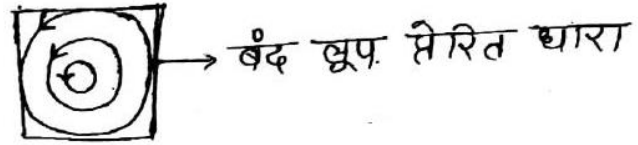 बंद लूप प्रेरित धारा